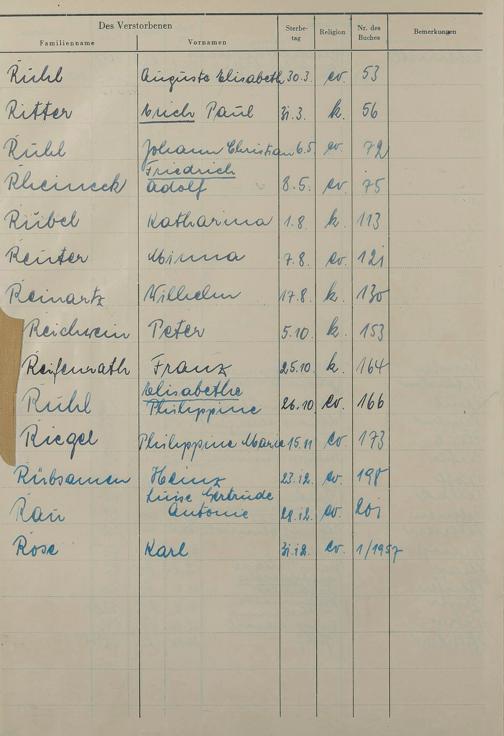 Des Verstorbenen Sterbe- tag Religion Nr. des Buches Bemerkungen
Familienname Vornamen
Rühl Auguste Elisabeth 30.3. ev. 53
Ritter Erich Paul 31.3. k. 56
Rühl Johann Christian 6.5. ev. 72
Friedrich
Rheineck Adolf 8.5. ev. 75
Rübel Katharina 1.8. k. 113
Reuter Minna 7.8. ev. 121
Reinartz Wilhelm 17.8. k. 130
Reichwein Peter 5.10. k. 153
Reifenrath Franz 25.10. k. 164
Elisabethe
Rühl Philippine 26.10. ev. 166
Riegel Philippine Marie 15.11 ev 173
Rübsamen Heinz 23.12. ev. 198
Luise Gertrude
Rau Antonie 28.12. ev. 201
Rose Karl 31.12. ev. 1/1957